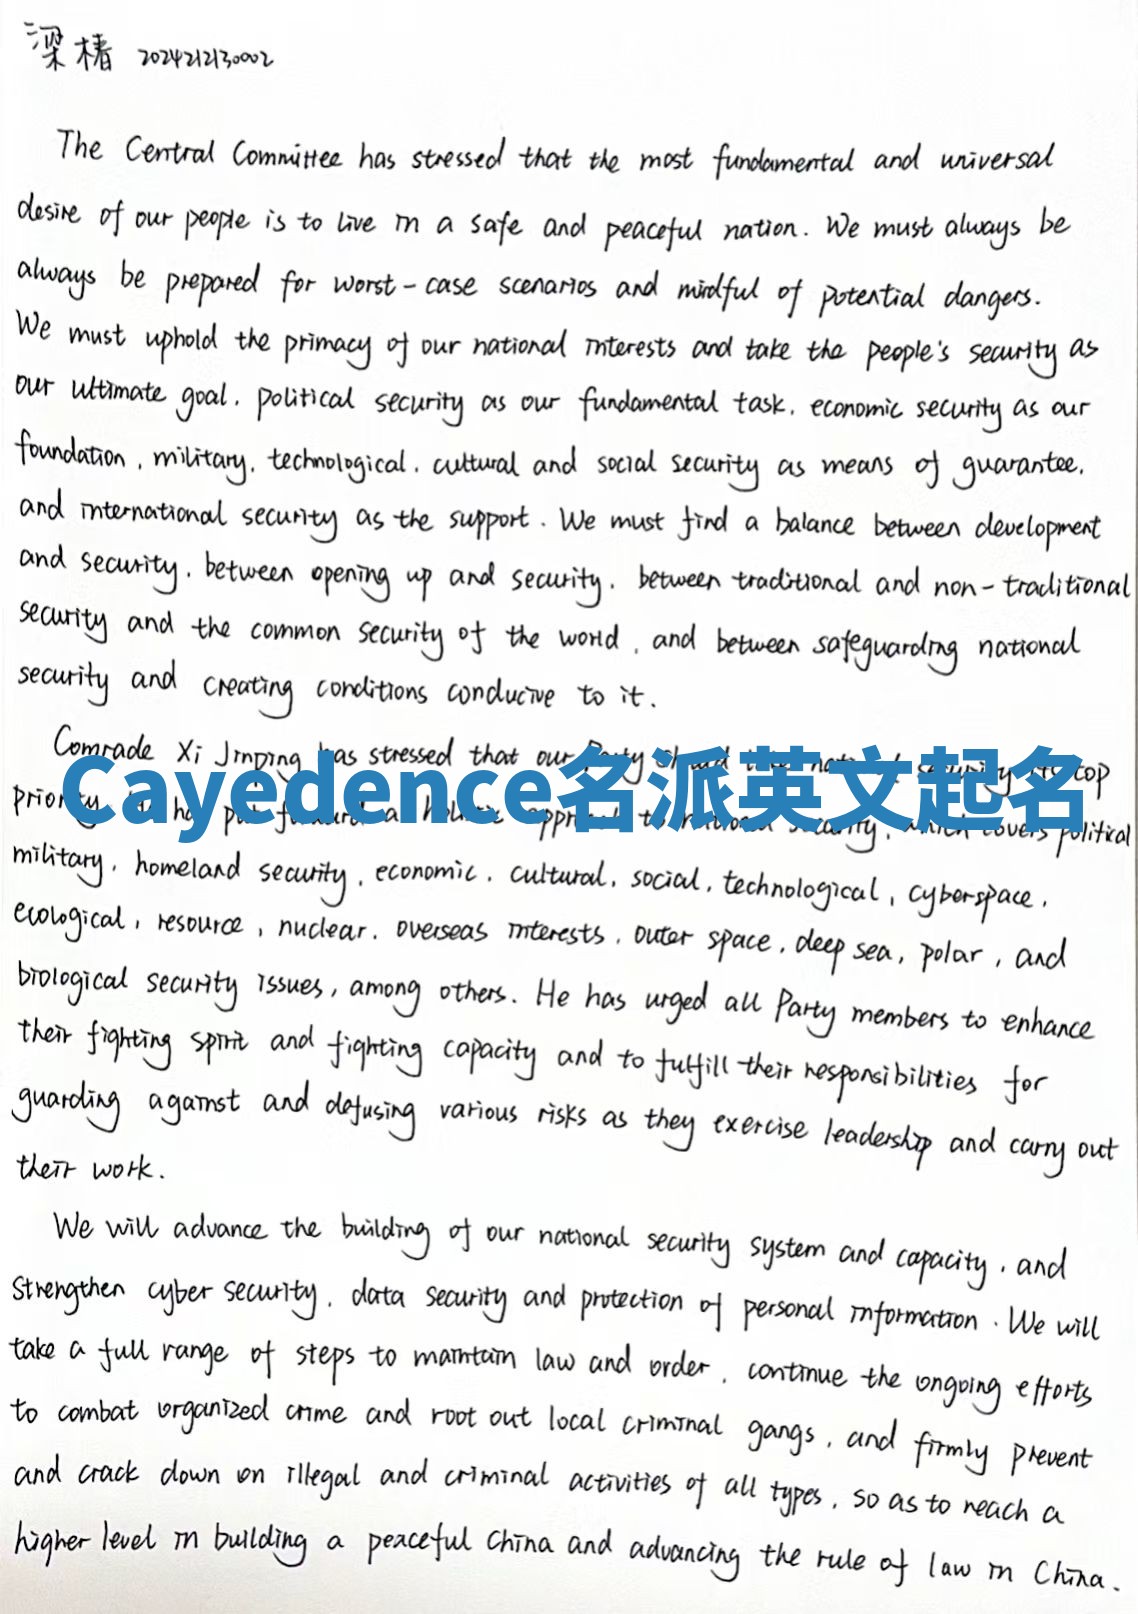 梁椿 2024212130002
The Central Committee has stressed that the most fundamental and universal
desire of our people is to live in a safe and peaceful nation. We must always be
always be prepared for worst-case scenarios and mindful of potential dangers.
We must uphold the primacy of our national interests and take the people's security as
our ultimate goal, political security as our fundamental task, economic security as our
foundation, military, technological, cultural and social security as means of guarantee,
and international security as the support. We must find a balance between development
and security, between opening up and security, between traditional and non-traditional
security and the common security of the world, and between safeguarding national
security and creating conditions conducive to it.
Comrade Xi Jinping has stressed that our Party should take security its top
Cayedence名派英文起名
priority. to national security, which covers political
military, homeland security, economic, cultural, social, technological, cyberspace,
ecological, resource, nuclear, overseas interests, outer space, deep sea, polar, and
biological security issues, among others. He has urged all Party members to enhance
their fighting spirit and fighting capacity and to fulfill their responsibilities for
guarding against and defusing various risks as they exercise leadership and carry out
their work.
We will advance the building of our national security system and capacity, and
strengthen cyber security, data security and protection of personal information. We will
take a full range of steps to maintain law and order, continue the ongoing efforts
to combat organized crime and root out local criminal gangs, and firmly prevent
and crack down on illegal and criminal activities of all types, so as to reach a
higher level in building a peaceful China and advancing the rule of law in China.